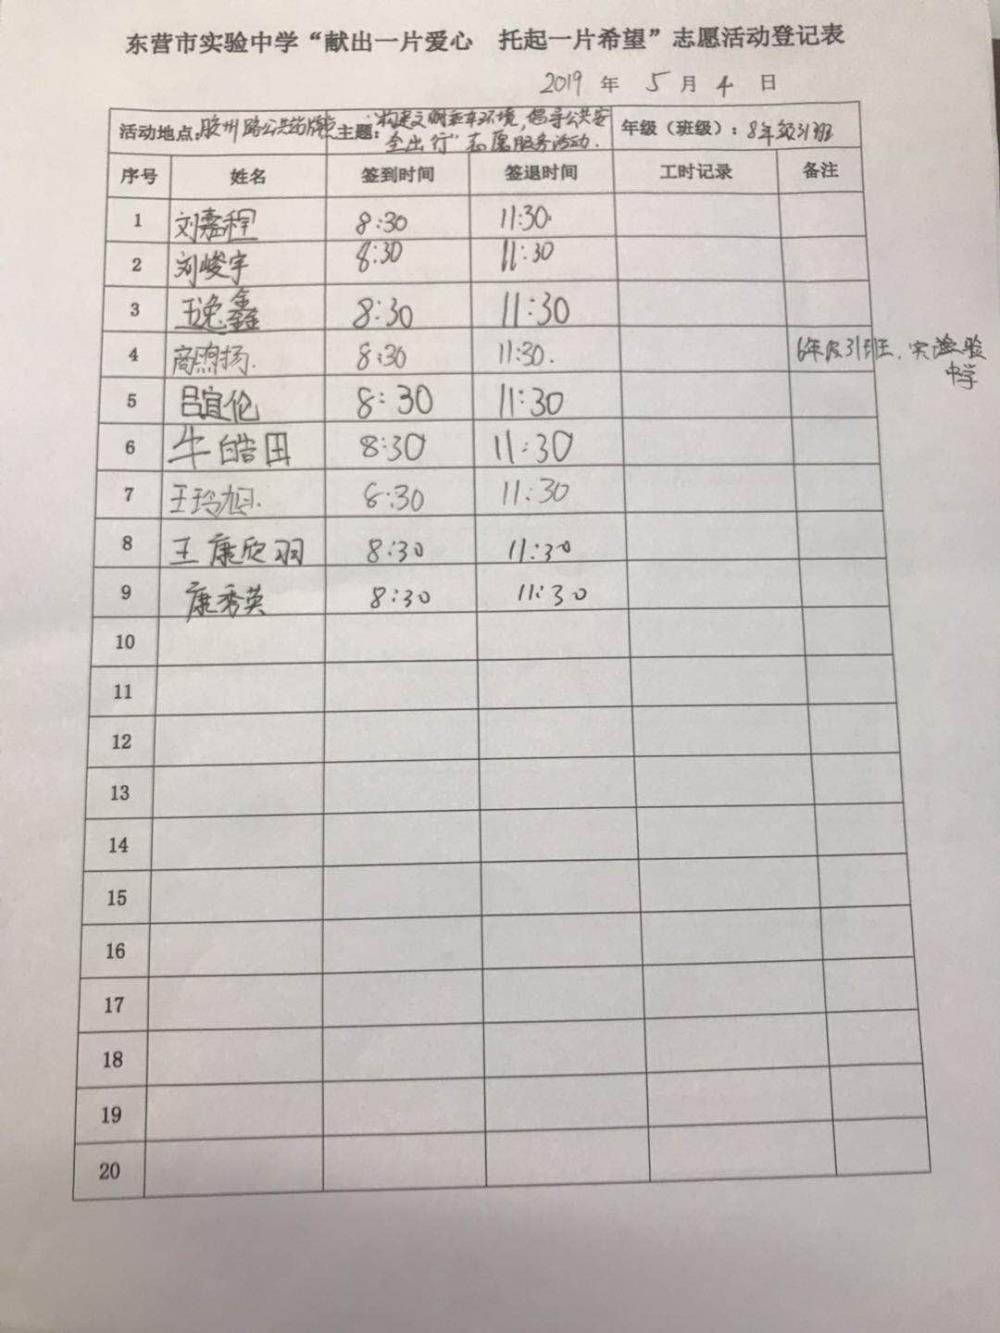 东营市实验中学“献出一片爱心 托起一片希望”志愿活动登记表
2019 年 5 月 4 日
活动地点:胶州路公共站牌 主题:“构建文明乘车环境,倡导公共安 年级(班级):8年级31班
全出行”志愿服务活动.
序号 姓名 签到时间 签退时间 工时记录 备注
1 刘嘉程 8:30 11:30.
2 刘峻宇 8:30 11:30
3 王逸鑫 8:30 11:30
4 商煦扬. 8:30 11:30. 6年级31班.实验
中学
5 吕宜伦 8:30 11:30
6 牛皓田 8:30 11:30
7 王玲旭. 8:30 11:30
8 王康欣羽 8:30 11:30
9 康秀英 8:30 11:30
10
11
12
13
14
15
16
17
18
19
20